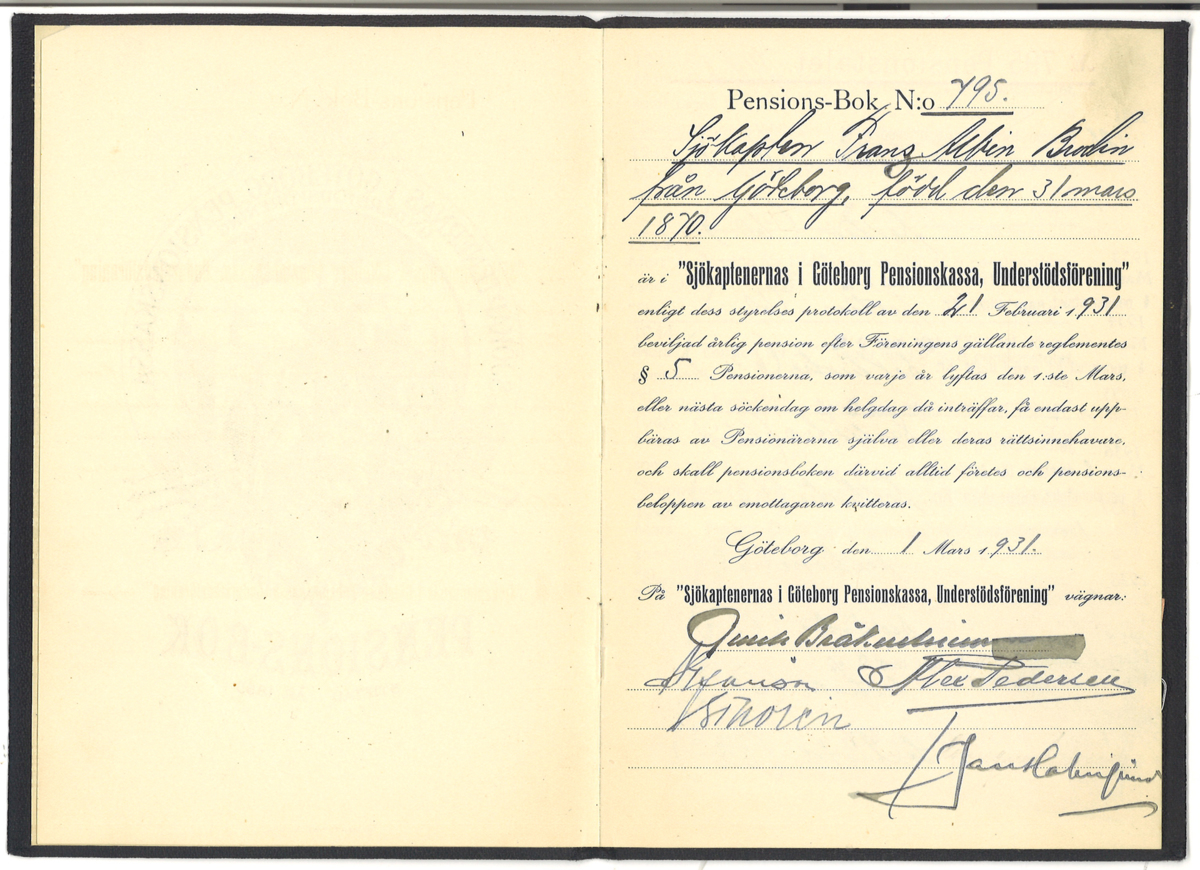 Pensions-Bok N:o 795.
Sjökapten Frans Albin Brodin
från Göteborg, född den 31 mars
1870.
är i "Sjökaptenernas i Göteborg Pensionskassa, Understödsförening"
enligt dess styrelses protokoll av den 21 Februari 1931
beviljad årlig pension efter Föreningens gällande reglementes
§ 5 Pensionerna, som varje år lyftas den 1:ste Mars,
eller nästa söckendag om helgdag då inträffar, få endast upp-
bäras av Pensionärerna själva eller deras rättsinnehavare,
och skall pensionsboken därvid alltid företes och pensions-
beloppen av emottagaren kvitteras.
Göteborg den 1 Mars 1931.
På "Sjökaptenernas i Göteborg Pensionskassa, Understödsförening" vägnar:
Pedersen
Thorin